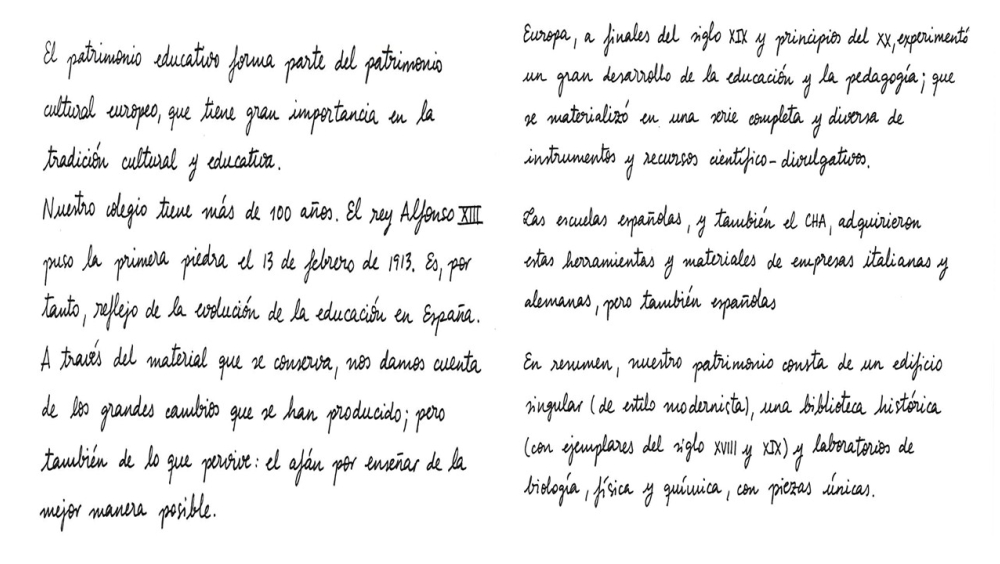 El patrimonio educativo forma parte del patrimonio
cultural europeo, que tiene gran importancia en la
tradición cultural y educativa.
Nuestro colegio tiene más de 100 años. El rey Alfonso XIII
puso la primera piedra el 13 de febrero de 1913. Es, por
tanto, reflejo de la evolución de la educación en España.
A través del material que se conserva, nos damos cuenta
de los grandes cambios que se han producido; pero
también de lo que pervive: el afán por enseñar de la
mejor manera posible.
Europa, a finales del siglo XIX y principios del XX, experimentó
un gran desarrollo de la educación y la pedagogía; que
se materializó en una serie completa y diversa de
instrumentos y recursos científico-divulgativos.
Las escuelas españolas, y también el CHA, adquirieron
estas herramientas y materiales de empresas italianas y
alemanas, pero también españolas
En resumen, nuestro patrimonio consta de un edificio
singular (de estilo modernista), una biblioteca histórica
(con ejemplares del siglo XVIII y XIX) y laboratorios de
biología, física y química, con piezas únicas.